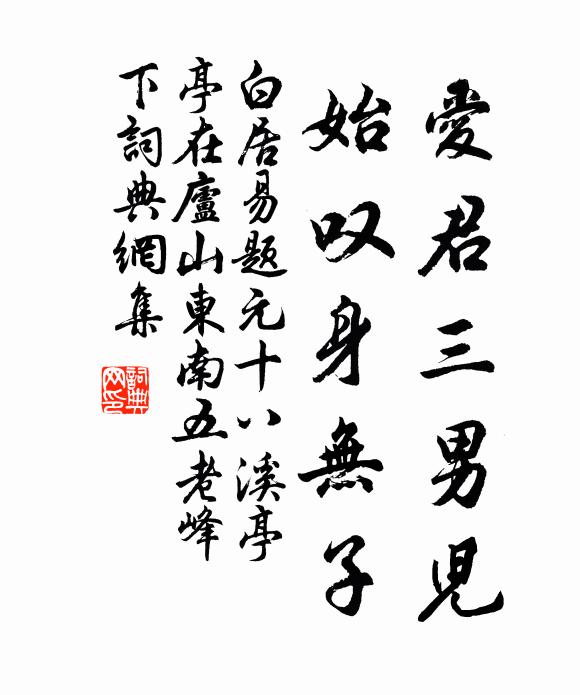 愛君三男兒
始叹身無子
白居易題元十八溪亭
亭在廬山東南五老峰
下詞典網集
詞典
网印